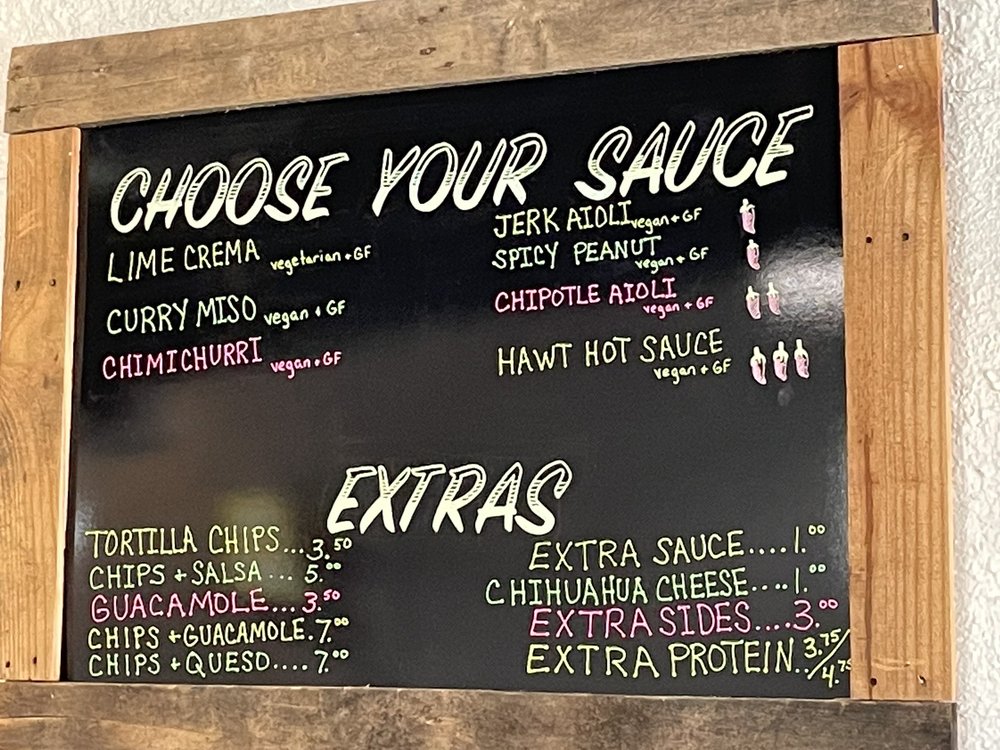 CHOOSE YOUR SAUCE
LIME CREMA vegetarian + GF
CURRY MISO vegan + GF
CHIMICHURRI vegan + GF
JERK AIOLI vegan + GF
SPICY PEANUT vegan + GF
CHIPOTLE AIOLI vegan + GF
HAWT HOT SAUCE
vegan + GF
EXTRAS
TORTILLA CHIPS...3.50
CHIPS + SALSA...5.00
GUACAMOLE...3.50
CHIPS + GUACAMOLE.7.00
CHIPS + QUESO....7.00
EXTRA SAUCE....1.00
CHIHUAHUA CHEESE....1.00
EXTRA SIDES....3.00
EXTRA PROTEIN..3.75/4.75